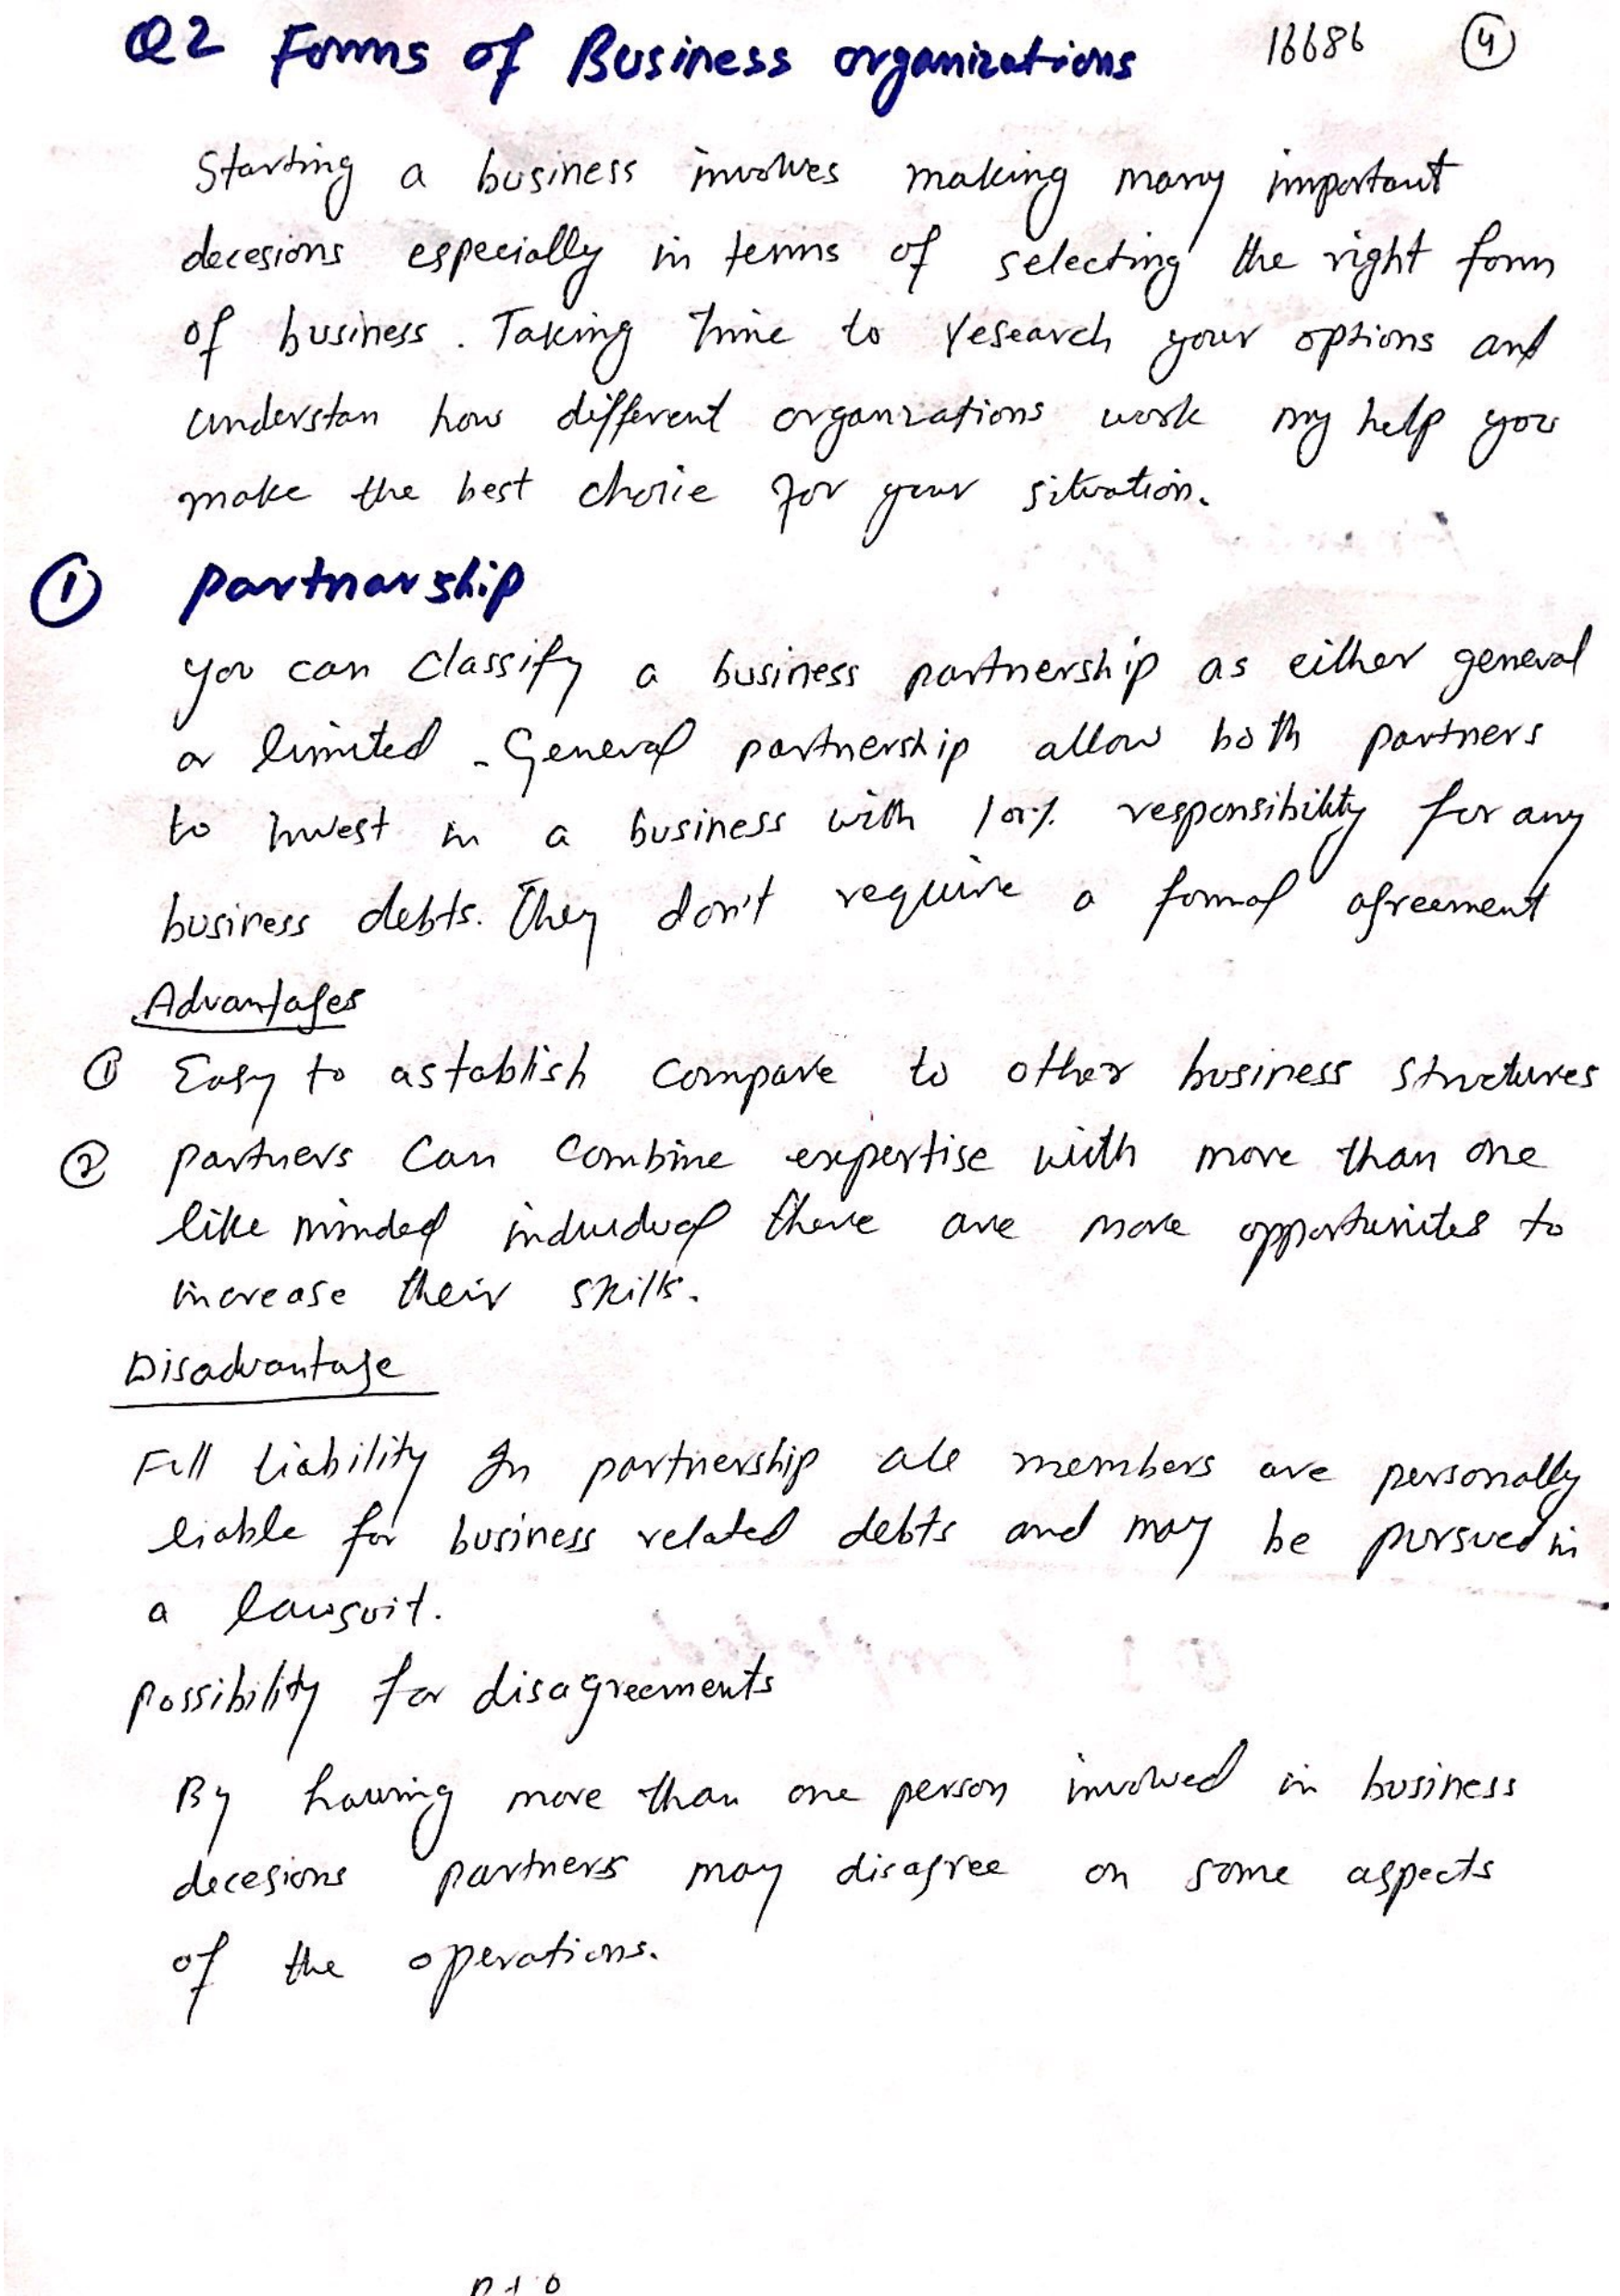 Q2 Forms of Business organizations 16686 4
Starting a business involves making many important
decesions especially in terms of selecting the right form
of business. Taking time to research your options and
understan how different organizations work my help you
make the best choice for your situation.
1 partnarship
you can classify a business partnership as either general
or limited - General partnership allow both partners
to invest in a business with responsibility for any
business debts. They don't require a formal agreement
Advantages
1 Easy to astablish compare to other business structures
2 partners can combine expertise with more than one
like minded individual there are more opportunites to
increase their skills.
Disadvantage
Full liability In partnership all members are personally
liable for business related debts and may be pursued in
a lawsuit.
possibility for disagreements
By having more than one person involved in business
decesions partners may disagree on some aspects
of the operations.